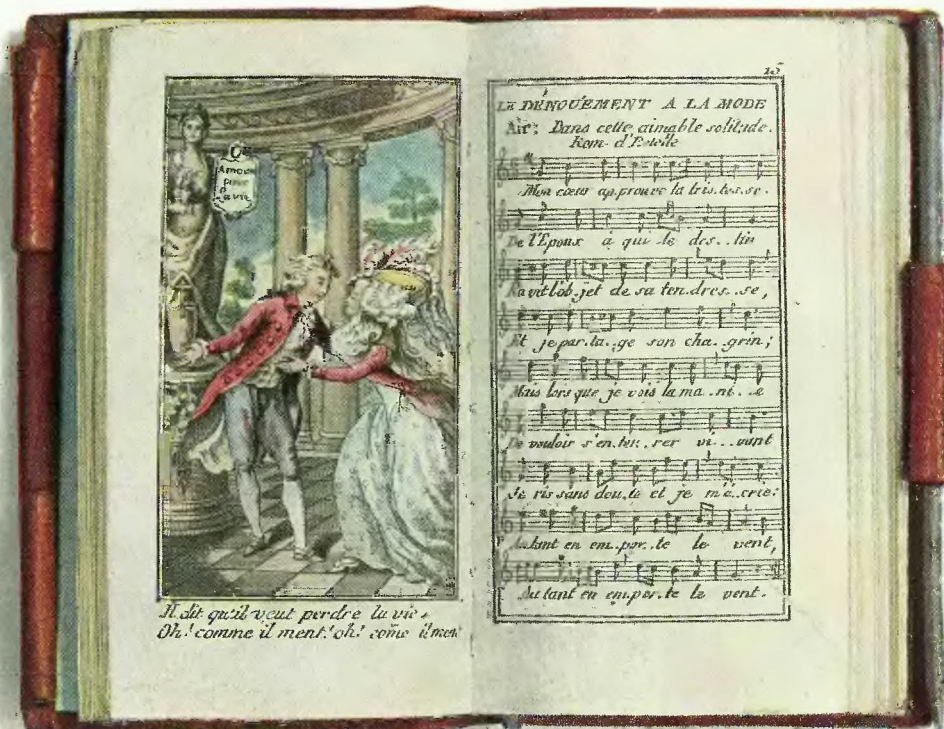 Amour
pour
la vie
Il dit qu'il veut perdre la vie.
Oh! comme il ment! oh! come il ment
LE DÉNOUEMENT A LA MODE
Air: Dans cette aimable solitude.
Rom. d'Estelle
Mon cœur ap.prouve la tris.tes.se.
De l'Epoux à qui le des..tin
Ravit l'ob.jet de sa ten.dres..se,
Et je par.ta..ge son cha..grin;
Mais lors que je vois la ma..ni..e
De vouloir s'en.ter..rer vi...vant
Je ris sans dou.te et je m'é..crie:
Autant en em..por..te le vent,
Au tant en em.por.te le vent.